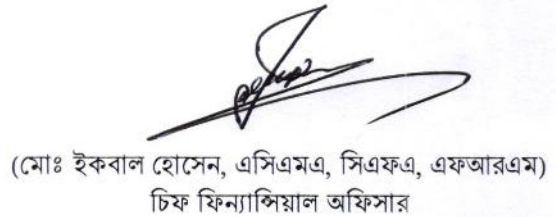 (মোঃ ইকবাল হোসেন, এসিএমএ, সিএফএ, এফআরএম)
চিফ ফিন্যান্সিয়াল অফিসার